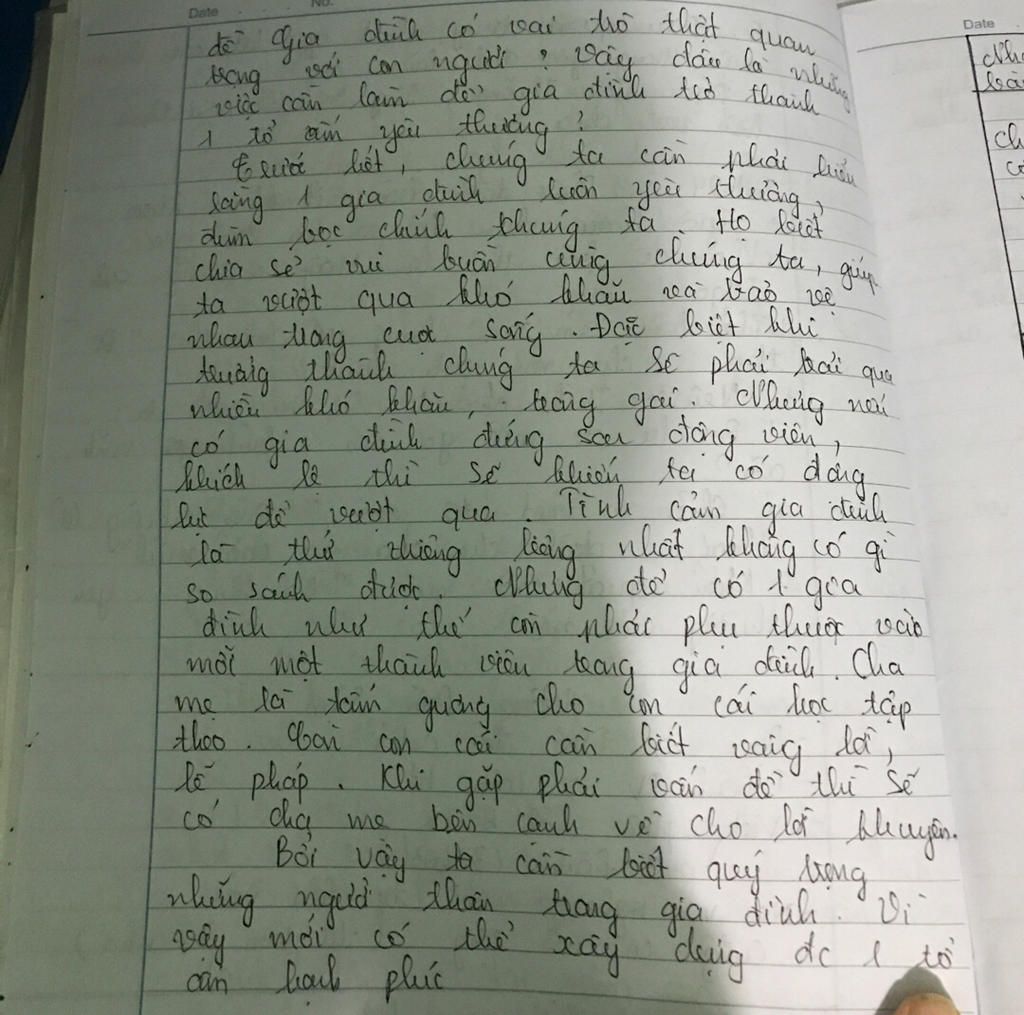 Date No.
để gia đình có vai trò thật quan
trọng với con người? Vậy đâu là những
việc cần làm để gia đình trở thành
1 tổ ấm yêu thương?
Trước hết, chúng ta cần phải hiểu
rằng 1 gia đình luôn yêu thương,
đùm bọc chính chúng ta. Họ biết
chia sẻ vui buồn cùng chúng ta, giúp
ta vượt qua khó khăn và bảo vệ
nhau trong cuộc sống. Đặc biệt khi
trưởng thành chúng ta sẽ phải trải qua
nhiều khó khăn, trông gai. Nhưng nếu
có gia đình đứng sau động viên,
khích lệ thì sẽ khiến ta có động
lực để vượt qua. Tình cảm gia đình
là thứ thiêng liêng nhất không có gì
so sánh được. Nhưng để có 1 gia
đình như thế còn phải phụ thuộc vào
mỗi một thành viên trong gia đình. Cha
mẹ là tấm gương cho con cái học tập
theo. Còn con cái cần biết vâng lời,
lễ pháp. Khi gặp phải vấn đề thì sẽ
có cha mẹ bên cạnh về cho lời khuyên.
Bởi vậy ta cần biết quý trọng
những người thân trong gia đình. Vì
vậy mới có thể xây dựng đc 1 tổ
ấm hạnh phúc
Date